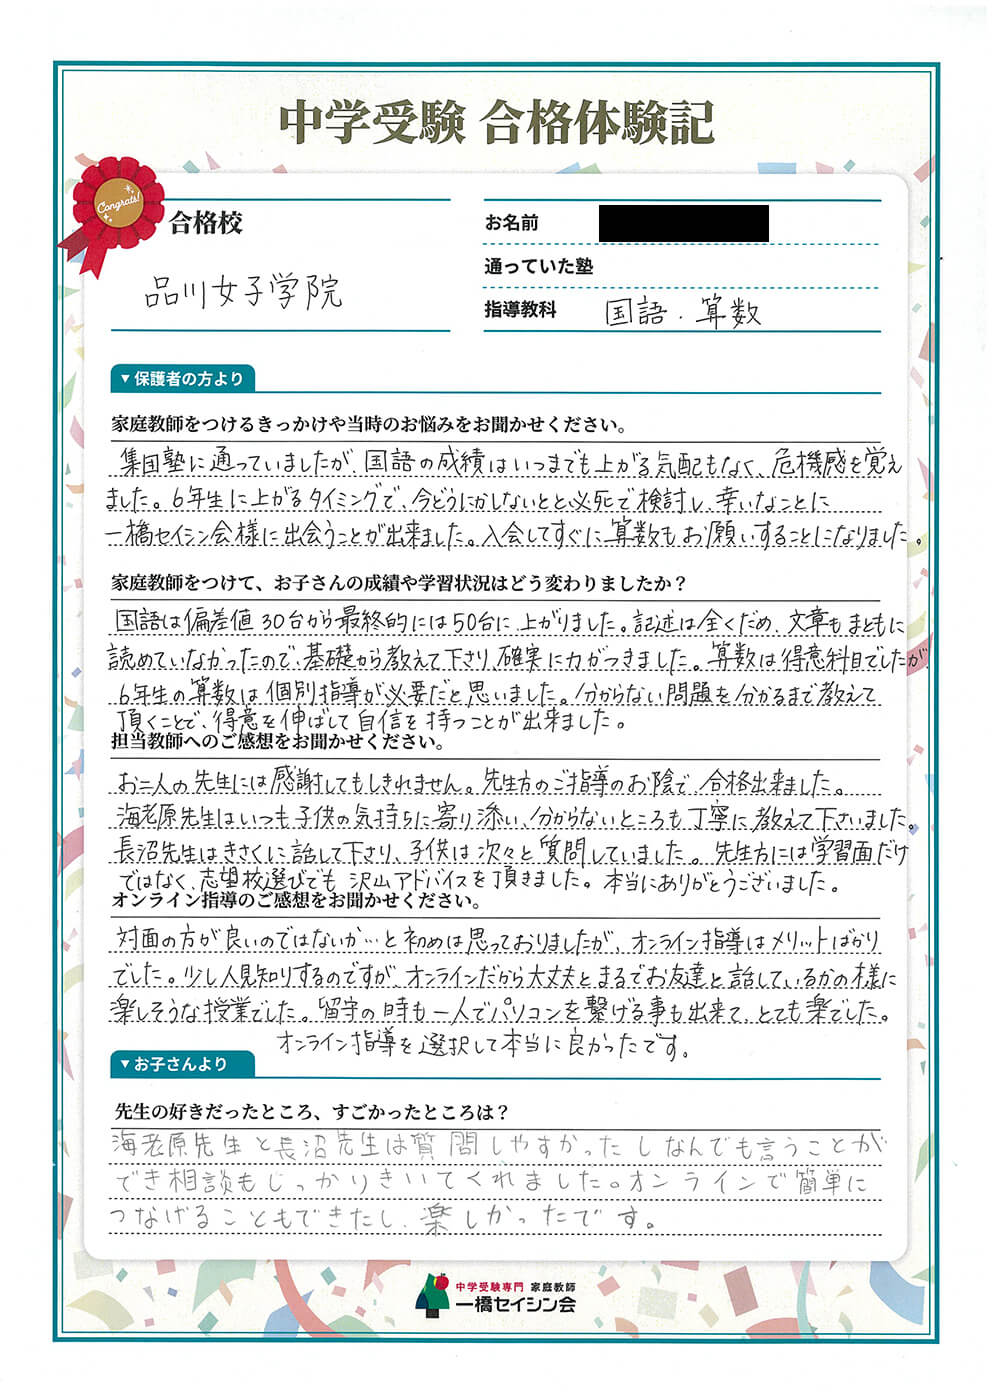 中学受験 合格体験記
Congrats!
合格校
品川女子学院
お名前
通っていた塾
指導教科 国語・算数
▼保護者の方より
家庭教師をつけるきっかけや当時のお悩みをお聞かせください。
集団塾に通っていましたが、国語の成績はいつまでも上がる気配もなく、危機感を覚え
ました。6年生に上がるタイミングで、今どうにかしないとと必死で検討し、幸いなことに
一橋セイシン会様に出会うことが出来ました。入会してすぐに算数もお願いすることになりました。
家庭教師をつけて、お子さんの成績や学習状況はどう変わりましたか？
国語は偏差値30台から最終的には50台に上がりました。記述は全くだめ、文章もまともに
読めていなかったので、基礎から教えて下さり、確実に力がつきました。算数は得意科目でしたが、
6年生の算数は個別指導が必要だと思いました。分からない問題を分かるまで教えて
頂くことで、得意を伸ばして自信を持つことが出来ました。
担当教師へのご感想をお聞かせください。
お二人の先生には感謝してもしきれません。先生方のご指導のお陰で、合格出来ました。
海老原先生はいつも子供の気持ちに寄り添い、分からないところも丁寧に教えて下さいました。
長沼先生はきさくに話して下さり、子供は次々と質問していました。先生方には学習面だけ
ではなく、志望校選びでも沢山アドバイスを頂きました。本当にありがとうございました。
オンライン指導のご感想をお聞かせください。
対面の方が良いのではないか…と初めは思っておりましたが、オンライン指導はメリットばかり
でした。少し人見知りするのですが、オンラインだから大丈夫とまるでお友達と話しているかの様に
楽しそうな授業でした。留守の時も一人でパソコンを繋げる事も出来て、とても楽でした。
オンライン指導を選択して本当に良かったです。
▼お子さんより
先生の好きだったところ、すごかったところは？
海老原先生と長沼先生は質問しやすかったしなんでも言うことが
でき相談もじっかりきいてくれました。オンラインで簡単に
つなげることもできたし、楽しかったです。
中学受験専門 家庭教師
一橋セイシン会